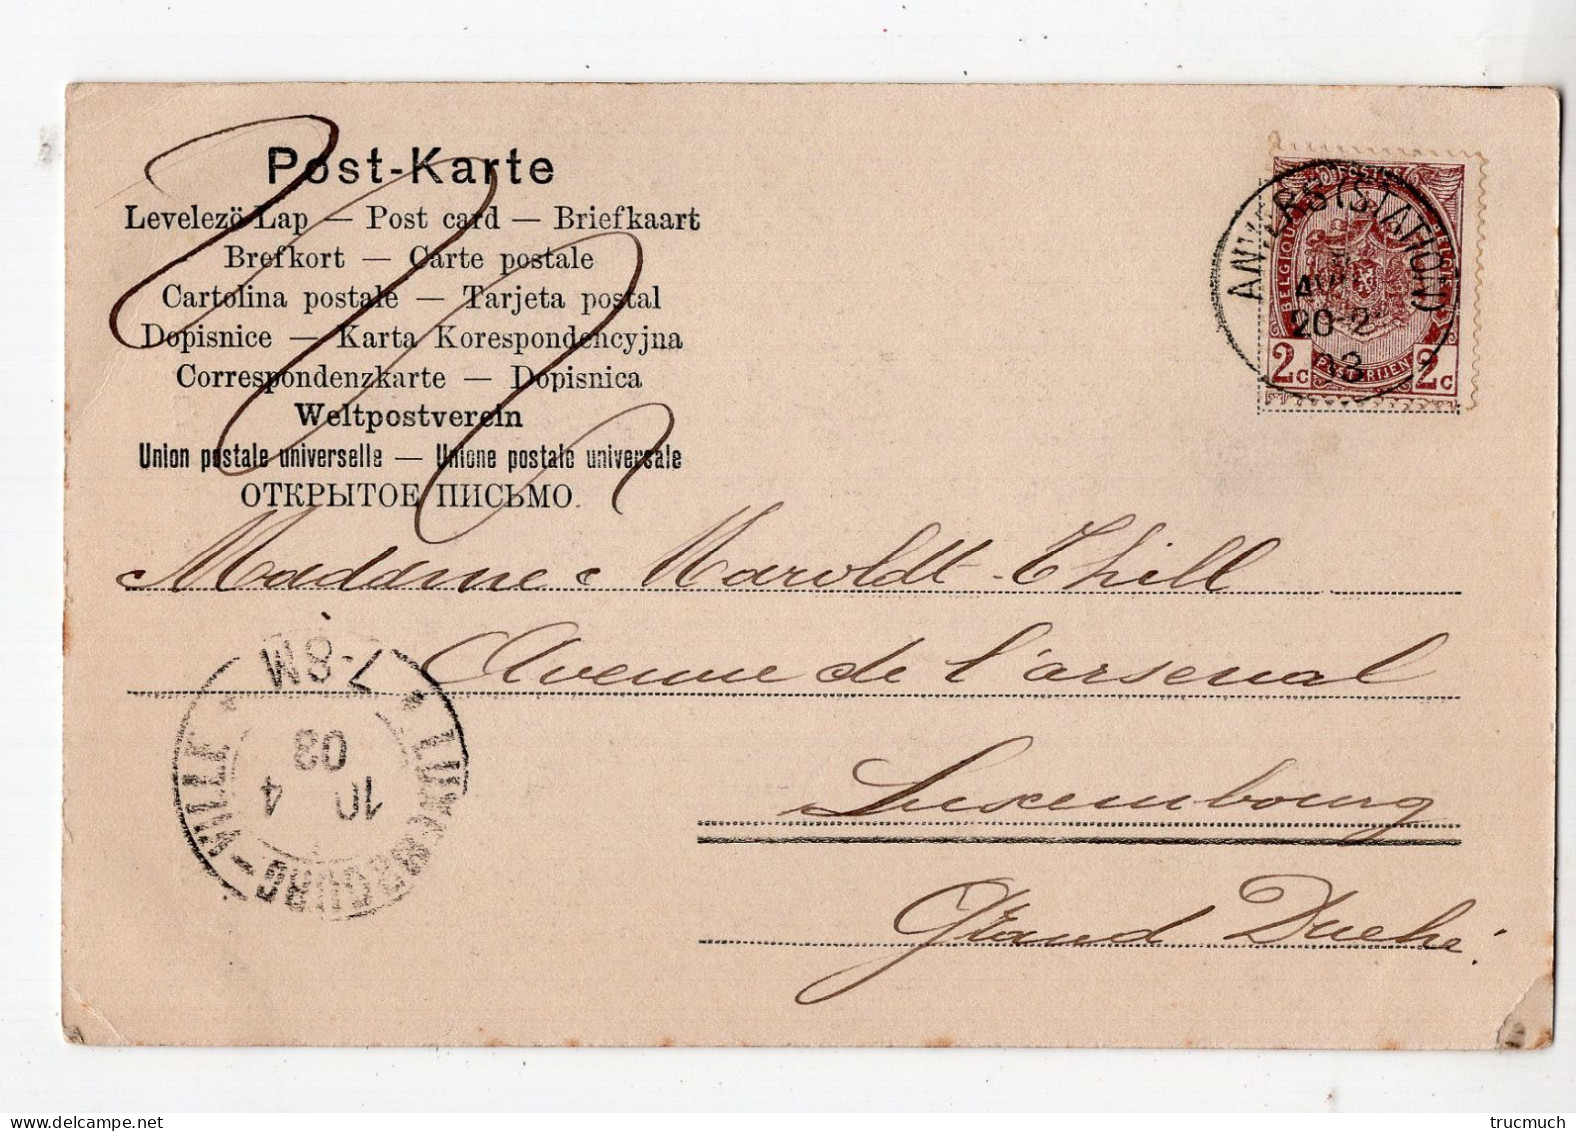 Post-Karte
Levelezö-Lap — Post card — Briefkaart
Brefkort — Carte postale
Cartolina postale — Tarjeta postal
Dopisnice — Karta Korespondencyjna
Correspondenzkarte — Dopisnica
Weltpostverein
Union postale universelle — Unione postale universale
ОТКРЫТОЕ ПИСЬМО.
ANVERS (STATION)
20-2
03
BELGIQUE
BELGIE
POSTERIJEN
2c 2c
Madame Maroldt-Thill
Avenue de l'arsenal
Luxembourg
Grand Duché.
LUXEMBOURG-VILLE
7-8M
10 4
03
trucmuch